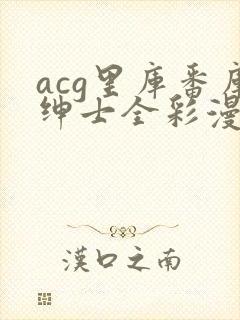 acg里库番库
绅士全彩漫
漢口之南